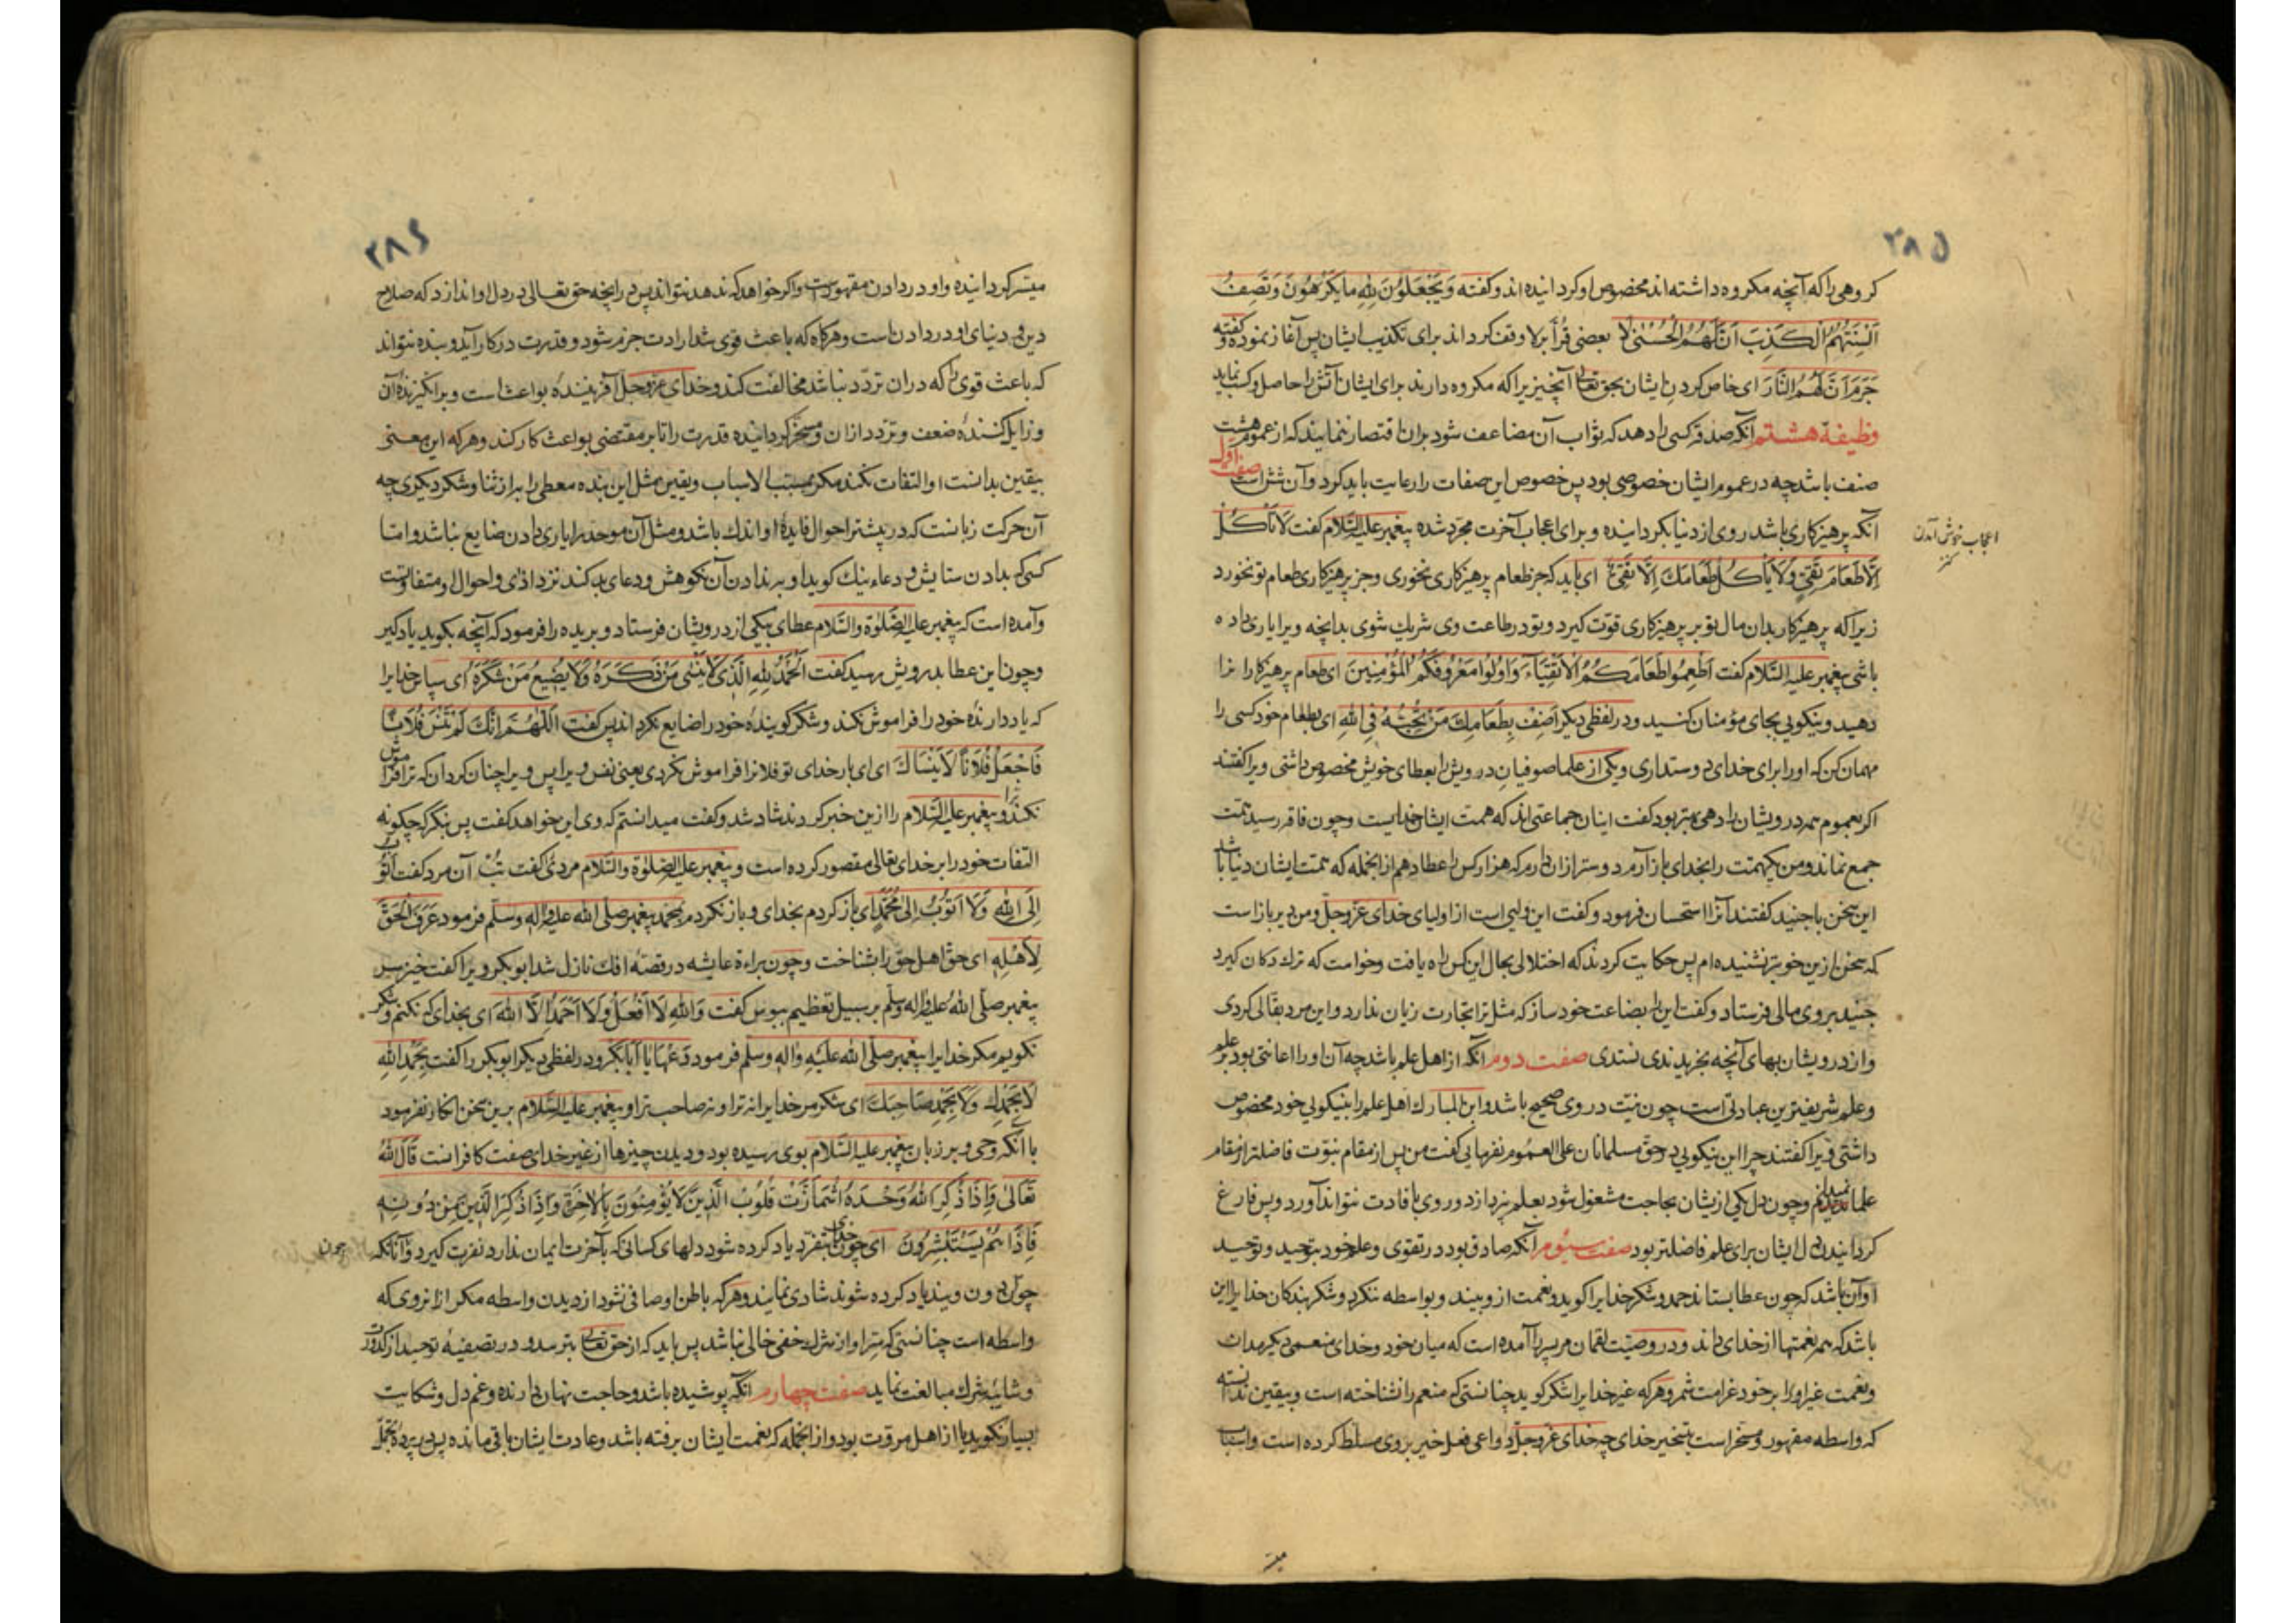 ۲۸۵
کروهی را که آنچه مکروه داشته اند مخصوص او کردانیده اند و کفته وَیَجْعَلُونَ لِلّٰهِ مایَکْرَهُونَ وَتَصِفُ
اَلْسِنَتُهُمُ الْکَذِبَ اَنَّ لَهُمُ الْحُسْنیٰ لا بعضی قُرّأ بر لا وقف کرده اند برای تکذیب ایشان پس آغاز نموده و کفته
جَرَمَ اَنَّ لَهُمُ النَّارَ ای خاص کردن ایشان بحق تعالی آنچیز یرا که مکروه دارند برای ایشان آتش را حاصل و کسب نماید
وظیفهٔ هشتم آنکه صدقه کسی را دهد که ثواب آن مضاعف شود بران اقتصار ننمایند که از عموم هشت
صنف باشد چه در عموم ایشان خصوصی بود پس خصوص این صفات را رعایت باید کرد و آن شش است صفت اوّل
آنکه پرهیزکاری باشد روی از دنیا بکردانیده و برای اعجاب آخرت مجرّد شده پیغمبر علیه السّلام کفت لاتَأکُلْ
اعجاب خوش آمدن
اِلّا طَعَامَ تَقِیٍّ وَلایَأکُلْ طَعَامَكَ اِلَّا تَقِیٌّ ای باید که جز طعام پرهیزکاری نخوری و جز پرهیزکاری طعام تو نخورد
زیرا که پرهیزکار بدان مال تو بر پرهیزکاری قوّت کیرد و تو در طاعت وی شریك شوی بدانچه ویرا یاری داده
باشی پیغمبر علیه السّلام کفت اَطْعِمُوا طَعَامَکُمُ الْاَتْقِیَآءَ وَاَوْلُوا مَعْرُوفَکُمُ الْمُؤْمِنِینَ ای طعام پرهیزکارانرا
دهید و نیکویی بجای مؤمنان کنید و در لفظی دیکر اَضِفْ بِطَعَامِكَ مَنْ تُحِبُّهُ فِی اللهِ ای بطعام خود کسی را
مهمان کن که او را برای خدای دوستداری و یکی از علما صوفیان درویش را بعطای خویش مخصوص داشتی ویرا کفتند
اکر بعموم همه درویشان را دهی بهتر بود کفت اینان جماعتی اند که همت ایشان خدایست و چون فاقه رسید همت
جمع نماند و من یکهمّت را بخدای باز آرم دوستر ازان دارم که هزار کس را عطا دهم ازانجمله که همت ایشان دنیا باشد
این سخن با جنید کفتند آنرا استحسان فرمود و کفت این ولیی است از اولیای خدای عزّوجلّ و من دیر باز است
که سخن ازین خوبتر نشنیده ام پس حکایت کردند که اختلالی بحال این کس راه یافت و خواست که ترك دکان کیرد
جنید بروی مالی فرستاد و کفت این را بضاعت خود ساز که مثل ترا تجارت زیان ندارد و این مرد بقالی کردی
و از درویشان بهای آنچه بخریدندی نستدی صفت دوم آنکه از اهل علم باشد چه آن او را اعانتی بود بر علم
و علم شریفترین عبادتی است چون نیّت در وی صحیح باشد و ابن المبارك اهل علم را بنیکویی خود مخصوص
داشتی ویرا کفتند چرا این نیکویی در حق مسلمانان علی العموم نفرمایی کفت من پس از مقام نبوّت فاضلتر از مقام
علما نمیدانم و چون دل یکی ازیشان بحاجت مشغول شود بعلم نپردازد و روی بافادت نتواند آورد و پس فارغ
کردانیدن دل ایشان برای علم فاضلتر بود صفت سیّوم آنکه صادق بود در تقوی و علم خود بتوحید و توحید
او آن باشد که چون عطا بستاند حمد و شکر خدایرا کوید و نعمت ازو بیند و بواسطه ننکرد و شکر بندکان خدایرا این
باشد که همه نعمتها از خدای داند و در وصیّت لقمان مر پسر را آمده است که میان خود و خدای منعمی دیکر مدان
و نعمت غیر او را بر خود غرامت شمر و هر که غیر خدایرا شکر کوید چنانستی که منعم را نشناخته است و بیقین ندانسته
که واسطه مقهور و مسخّر است بتسخیر خدای چه خدای عزّوجلّ دواعی فعل خیر بر وی مسلّط کرده است و اسباب
میسّر
۲۸۶
میسّر کردانیده و او در دادن مقهور است و اکر خواهد که ندهد نتواند پس درانچه حق تعالی در دل او اندازد که صلاح
دین و دنیای او در دادن است و هرکاه که باعث قوی شد ارادت جزم شود و قدرت در کار آید و بنده نتواند
که باعث قوی را که دران تردّد نباشد مخالفت کند و خدای عزّوجلّ آفرینندهٔ بواعث است و برانکیزندهٔ آن
و زایل کنندهٔ ضعف و تردّد ازان و مسخّر کردانیده قدرت را تا بر مقتضی بواعث کار کند و هر که این معنی
بیقین بدانست او التفات نکند مکر بمسبّب الاسباب و یقین مثل این بنده معطی را به از ثنا و شکر دیکری چه
آن حرکت زبانست که در بیشتر احوال فایدهٔ او اندك باشد و مثل آن موحّد را یاری دادن ضایع نباشد و امّا
کسی که بدادن ستایش و دعاء نیك کوید او بر ندادن آن نکوهش و دعای بد کند نزد اذای و احوال او متفاوتست
و آمده است که پیغمبر علیه الصّلوٰة والسّلام عطای بیکی از درویشان فرستاد و برنده را فرمود که آنچه بکوید یاد کیر
و چون این عطا بدرویش رسید کفت اَلْحَمْدُ لِلّٰهِ الَّذی لایَنْسٰی مَنْ ذَکَرَهُ وَلایُضِیعُ مَنْ شَکَرَهُ ای سپاس خدایرا
که یاد دارندهٔ خود را فراموش نکند و شکر کویندهٔ خود را ضایع نکرداند پس کفت اَللّٰهُمَّ اِنَّكَ لَمْ تَنْسَ فُلَانًا
فَاجْعَلْ فُلَانًا لَایَنْسَاكَ ای ای بار خدای تو فلانرا فراموش نکردی یعنی نفس ویرا پس ویرا چنان کردان که ترا فراموش
نکند و پیغمبر علیه السّلام را ازین خبر کردند شاد شد و کفت میدانستم که وی این خواهد کفت پس بنکر که چکونه
التفات خود را بر خدای تعالی مقصور کرده است و پیغمبر علیه الصلوٰة والسّلام مردی را کفت تُبْ آن مرد کفت اَتُوبُ
اِلَی اللهِ وَلَا اَتُوبُ اِلٰی مُحَمَّدٍ ای باز کردم بخدای و باز نکردم بمحمد پیغمبر صلّی الله علیه واله وسلّم فرمود عَرَفَ الْحَقَّ
لِاَهْلِهِ ای حق اهل حق را بشناخت و چون براءة عایشه در قصهٔ افك نازل شد ابوبکر ویرا کفت خیز سر
پیغمبر صلّی اللهُ علیه واله وسلّم بر سبیل تعظیم ببوس کفت وَاللهِ لَااَفْعَلُ وَلَا اَحْمَدُ اِلَّا اللهَ ای بخدای که نکنم و شکر
نکویم مکر خدایرا پیغمبر صلّی الله علَیْهِ وَالِهِ وسلّم فرمود دَعْهَا یَا اَبَابَکْرٍ و در لفظی دیکر ابوبکر را کفت بِحَمْدِ اللهِ
لَابِحَمْدِكَ وَلَابِحَمْدِ صَاحِبِكَ ای شکر مر خدایرا نه ترا و نه صاحب ترا و پیغمبر علیه السّلام برین سخن انکار نفرمود
با آنکه وحی و بر زبان پیغمبر علیه السّلام بوی رسیده بود و دیدن چیزها از غیر خدای صفت کافرانست قَالَ اللهُ
تَعَالیٰ وَاِذَا ذُکِرَ اللهُ وَحْدَهُ اشْمَأَزَّتْ قُلُوبُ الَّذِینَ لَایُؤْمِنُونَ بِالْاخِرَةِ وَاِذَا ذُکِرَ الَّذِینَ مِنْ دُونِهِ
فَاِذَا هُمْ یَسْتَبْشِرُونَ ای چون خدای بتفرّد یاد کرده شود دلهای کسانی که بآخرت ایمان ندارد نفرت کیرد و آنانکه
چون دون ویند یاد کرده شوند شادی نمایند و هر که باطن او صافی نشود از دیدن واسطه مکر ازانروی که
واسطه است چنانستی که سِرّ او از شرك خفی خالی نباشد پس باید که از حق تعالی بترسد و در تصفیهٔ توحید از کدورت
و شایبهٔ شرك مبالغت نماید صفت چهارم آنکه پوشیده باشد و حاجت نهان دارنده و غم دل و شکایت
بسیار نکوید یا از اهل مروّت بود و ازانجمله که نعمت ایشان برفته باشد و عادت ایشان باقی مانده پس در پردهٔ تجمّل